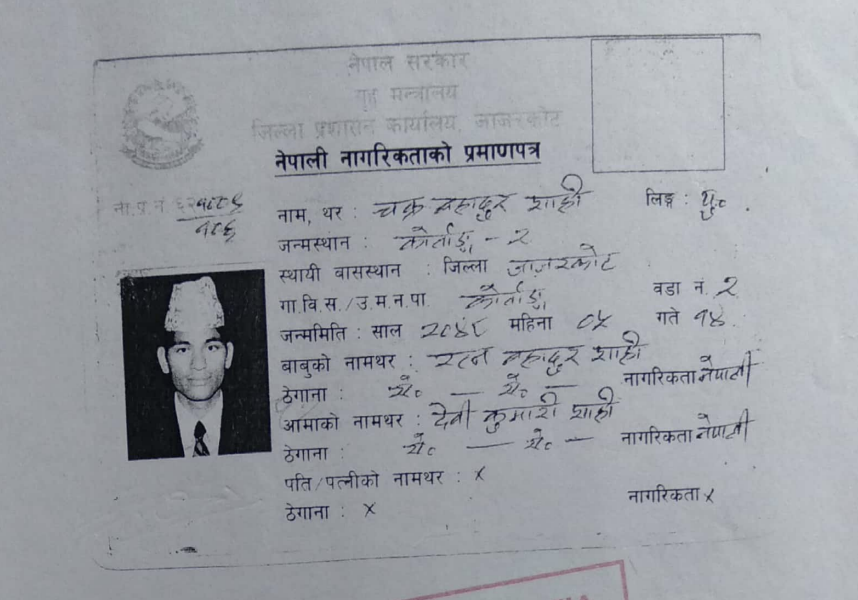 नेपाल सरकार
गृह मन्त्रालय
जिल्ला प्रशासन कार्यालय, जाजरकोट
नेपाली नागरिकताको प्रमाणपत्र
ना.प्र.नं
नाम, थर : चक्र बहादुर शाही लिङ्ग : पु०
जन्मस्थान : कोर्ताङ्ग - २
स्थायी बासस्थान : जिल्ला जाजरकोट
गा.वि.स./उ.म.न.पा. कोर्ताङ्ग वडा नं. २
जन्ममिति : साल महिना ०५ गते १४
बाबुको नामथर : रत्न बहादुर शाही
ठेगाना : ऐ० — ऐ० — नागरिकता नेपाली
आमाको नामथर : देवी कुमारी शाही
ठेगाना : ऐ० — ऐ० — नागरिकता नेपाली
पति/पत्नीको नामथर : x
ठेगाना : x नागरिकता x